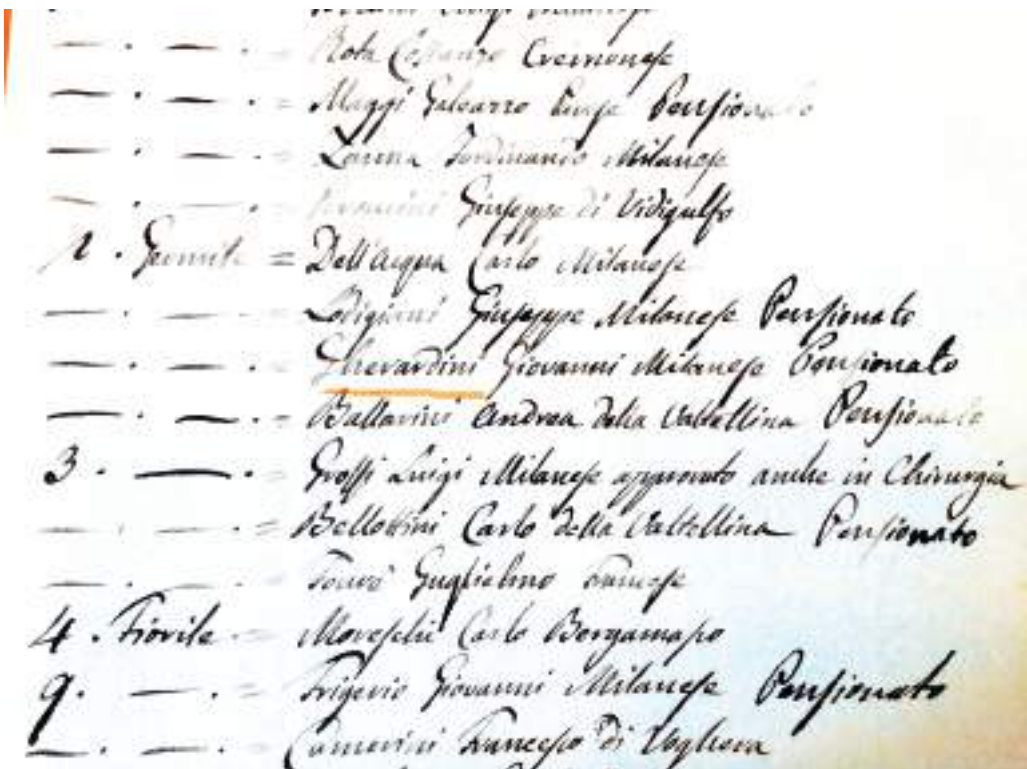 Rota Costanzo Cremonese
— . — . = Maggi Galeazzo Pavese Pensionato
— . — . = Zanna Ferdinando Milanese
— . — . = Giuseppe di Vidigulfo
1 . Germile = Dell'Acqua Carlo Milanese
— . — . = Lodigiani Giuseppe Milanese Pensionato
— . — . = Gherardini Giovanni Milanese Pensionato
— . — . = Ballarini Andrea della Valtellina Pensionato
3 . — . = Grossi Luigi Milanese approvato anche in Chirurgia
— . — . = Bellottini Carlo della Valtellina Pensionato
— . — . = Guglielmo Francese
4 . Fiorile . = Moreschi Carlo Bergamasco
9 . — . = Frigerio Giovanni Milanese Pensionato
— . — . = Camerini Francesco di Voghera